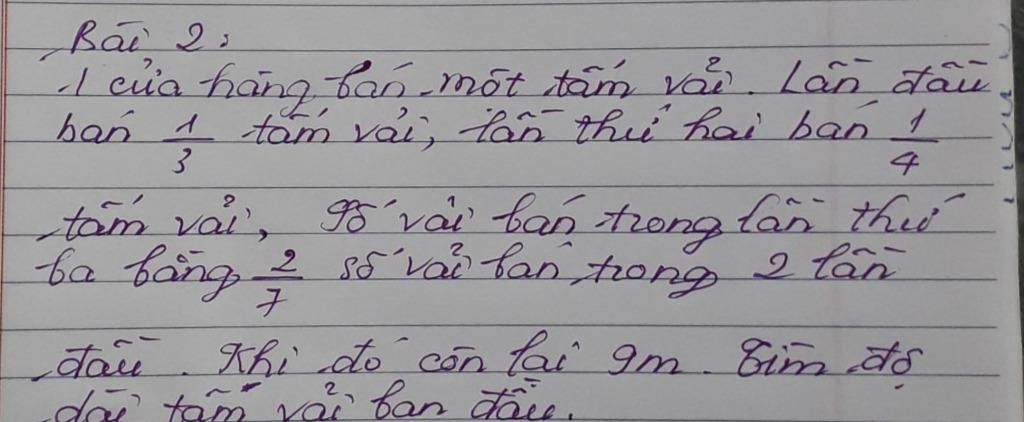 Bài 2:
1 cửa hàng bán một tấm vải. Lần đầu
bán 1/3 tấm vải, lần thứ hai bán 1/4
tấm vải, số vải bán trong lần thứ
ba bằng 2/7 số vải bán trong 2 lần
đầu. Khi đó còn lại 9m. Tìm độ
dài tấm vải ban đầu.